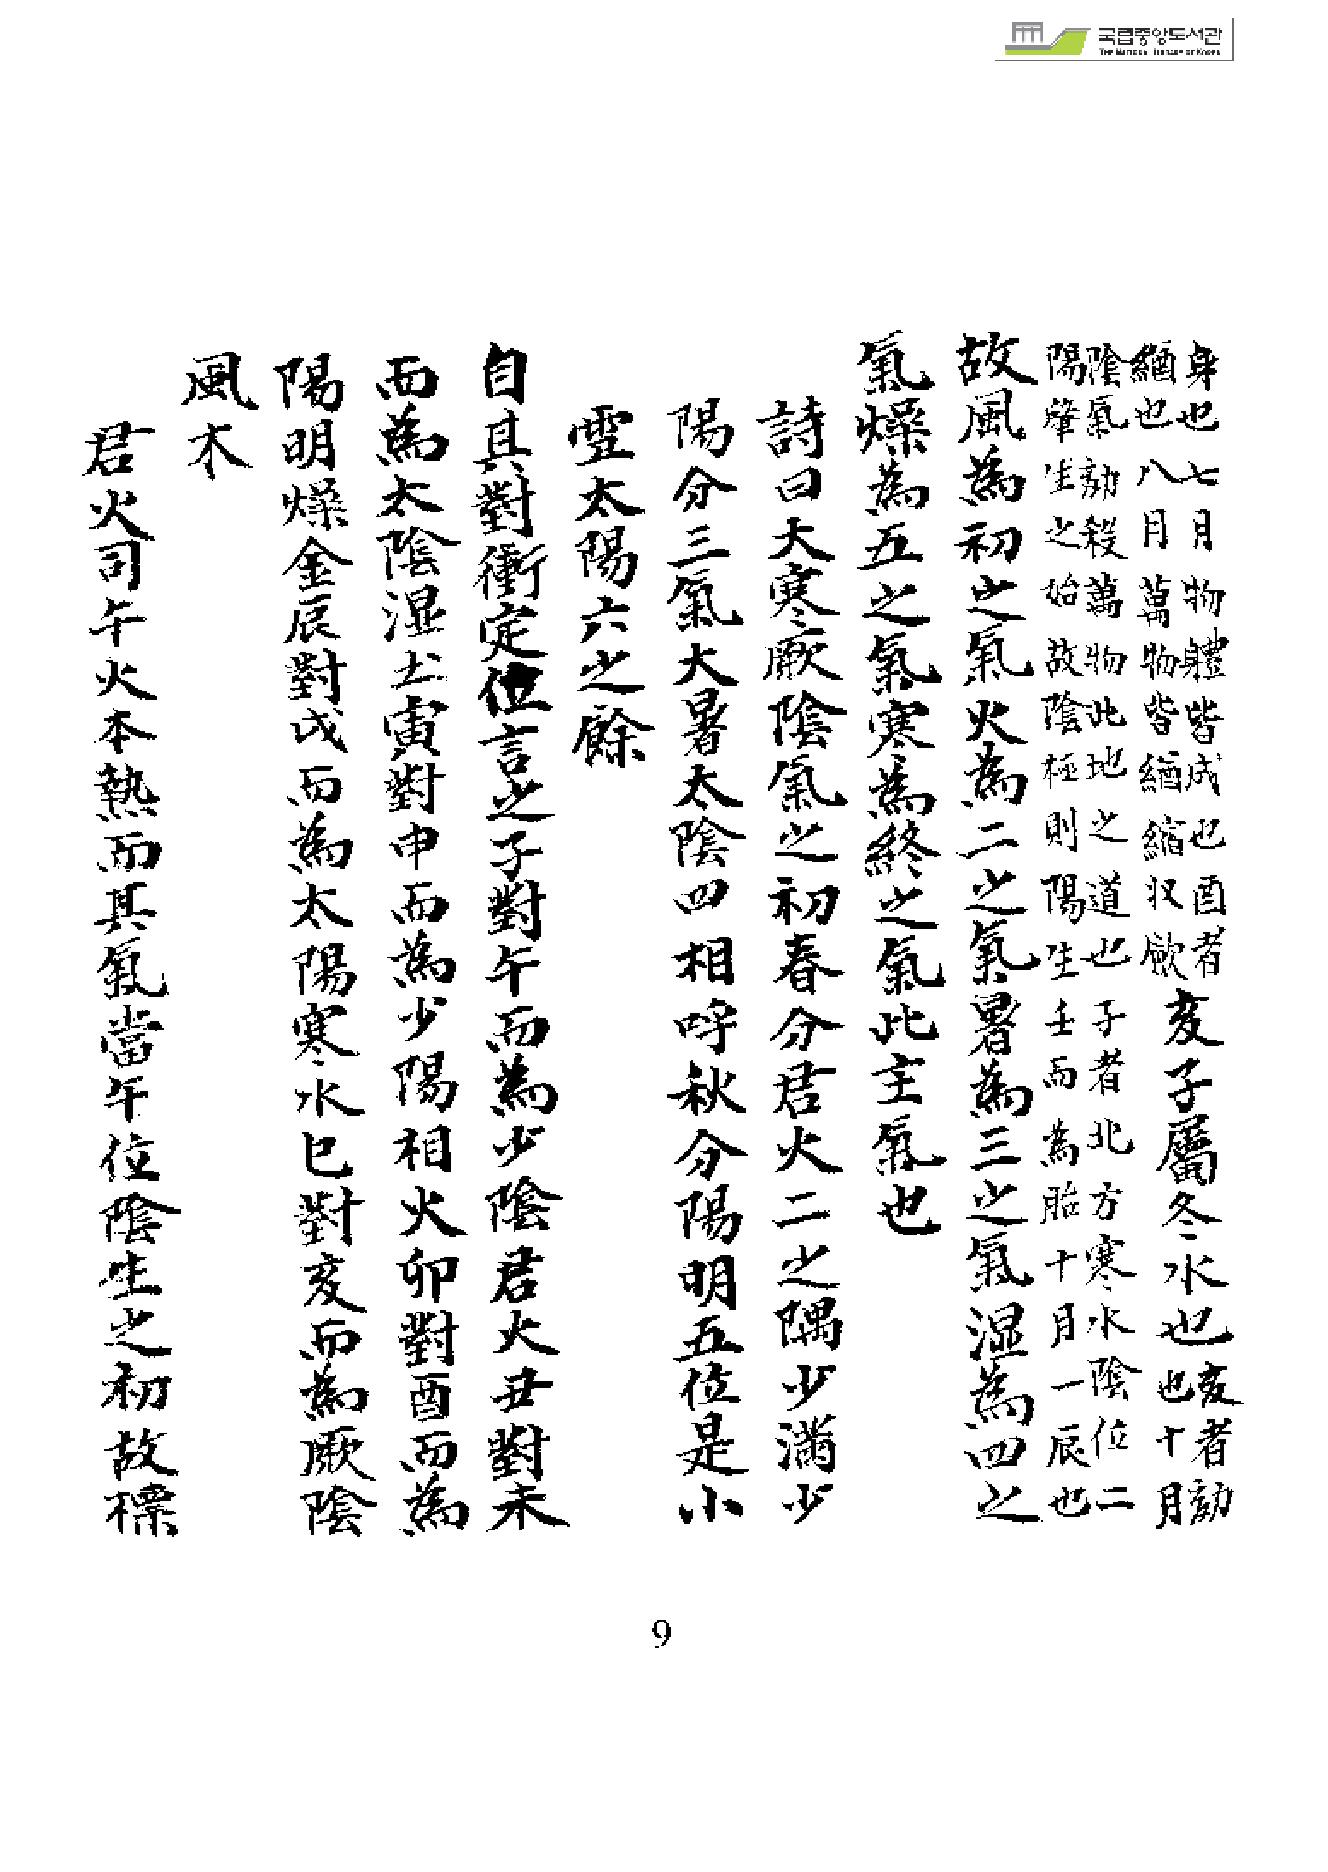 국립중앙도서관
THE NATIONAL LIBRARY OF KOREA
身也七月物體皆成也酉者
緧也八月萬物皆緧縮収歛
亥子屬冬水也
亥者劾
也十月
陰氣劾殺萬物此地之道也子者北方寒水陰位二
陽肇生之始故陰極則陽生壬而為胎十月一辰也
故風為初之氣火為二之氣暑為三之氣湿為四之
氣燥為五之氣寒為終之氣此主氣也
詩曰大寒厥陰氣之初春分君火二之隅少滿少
陽分三氣大暑太陰四相呼秋分陽明五位是小
雪太陽六之餘
自其對衝定位言之子對午而為少陰君火丑對未
而為太陰湿土寅對申而為少陽相火卯對酉而為
陽明燥金辰對戌而為太陽寒水巳對亥而為厥陰
風木
君火司午火本熱而其氣當午位陰生之初故標
9